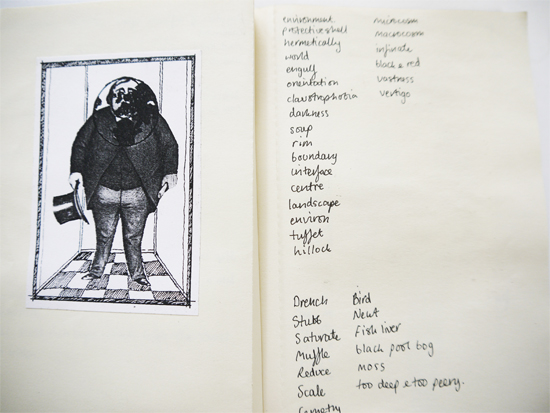 environment
protective shell
hermetically
world
engulf
orientation
claustrophobia
darkness
soap
rim
boundary
interface
centre
landscape
environ
tuffet
hillock
microcosm
macrocosm
infinate
black & red
vastness
vertigo
Drench
Stubb
Saturate
Muffle
Reduce
Scale
Bird
Newt
Fish liver
black pool bog
moss
too deep & too peery.